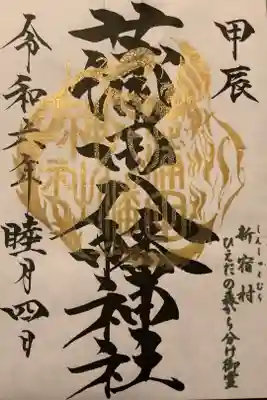 甲辰
しんしゅくむら
新宿村
ひえだの森から分け御霊
蒲田八幡神社
令和六年 睦月四日